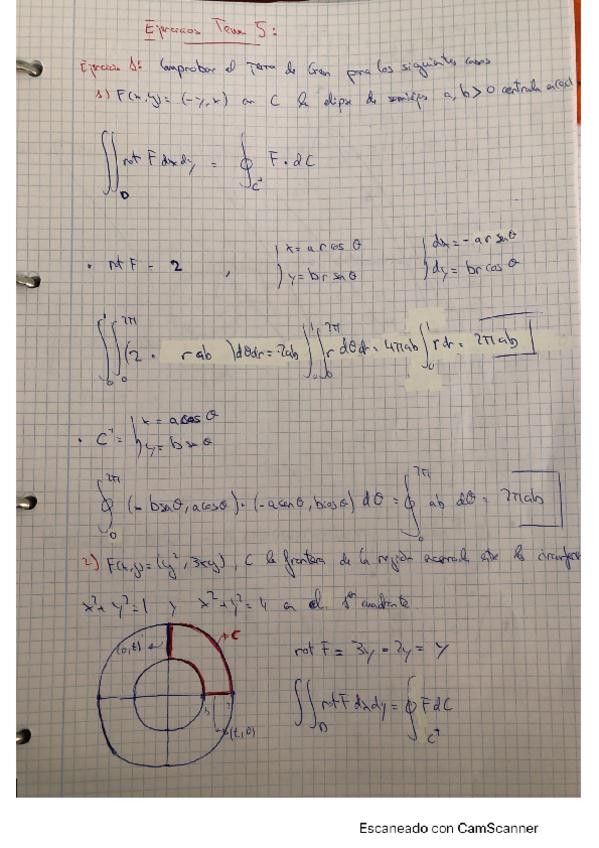 Ejercicios Tema 5:
Ejercicio 1: Comprobar el Tema de Green para los siguientes casos
1) F(x,y) = (-y,x) en C la elipse de semiejes a, b > 0 centrada en
∬_D rot F dxdy = ∮_C⁺ F · dC
· rot F = 2 , { x = a r cos θ { dx = -a r sen θ
y = b r sen θ dy = b r cos θ
∫₀¹∫₀^2π (2 · r a b) dθdr = 2ab ∫₀¹∫₀^2π r dθ dr = 4πab ∫₀¹ r dr = 2πab
· C⁺ = { x = a cos θ
y = b sen θ
∮₀^2π (-b sen θ, a cos θ) · (-a sen θ, b cos θ) dθ = ∮₀^2π ab dθ = 2πab
2) F(x,y) = (y², 3xy), C la frontera de la región acotada entre las
x² + y² = 1 y x² + y² = 4 en el 1º cuadrante
C
(0,t)
rot F = 3y - 2y = y
1 2
∬_D rot F dxdy = ∮_C⁺ F dC
(t,0)
Escaneado con CamScanner